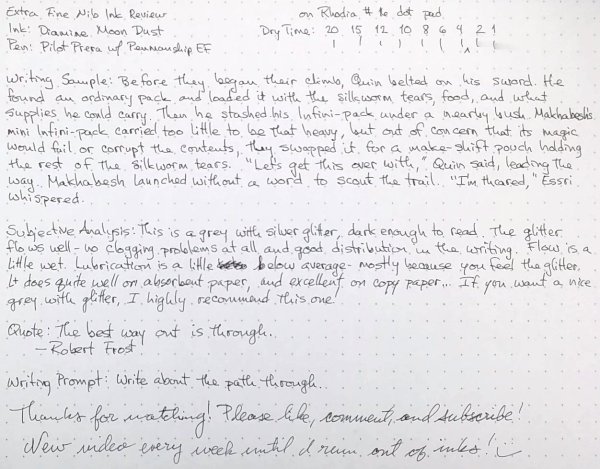 Extra Fine Nib Ink Review on Rhodia # 16 dot pad
Ink: Diamine Moon Dust Dry Time: 20 15 12 10 8 6 4 2 1
Pen: Pilot Prera w/ Penmanship EF
Writing Sample: Before they began their climb, Quin belted on his sword. He
found an ordinary pack and loaded it with the silkworm tears, food, and what
supplies he could carry. Then he stashed his Infini-pack under a nearby bush. Makhabesh's
mini Infini-pack carried too little to be that heavy, but out of concern that its magic
would fail or corrupt the contents, they swapped it for a make-shift pouch holding
the rest of the silkworm tears. "Let's get this over with," Quin said, leading the
way. Makhabesh launched without a word to scout the trail. "I'm thcared," Essri
whispered.
Subjective Analysis: This is a grey with silver glitter, dark enough to read. The glitter
flows well - no clogging problems at all and good distribution in the writing. Flow is a
little wet. Lubrication is a little below average - mostly because you feel the glitter.
It does quite well on absorbent paper, and excellent on copy paper... If you want a nice
grey with glitter, I highly recommend this one!
Quote: The best way out is through.
- Robert Frost
Writing Prompt: Write about the path through.
Thanks for watching! Please like, comment, and subscribe!
New video every week until I run out of inks!